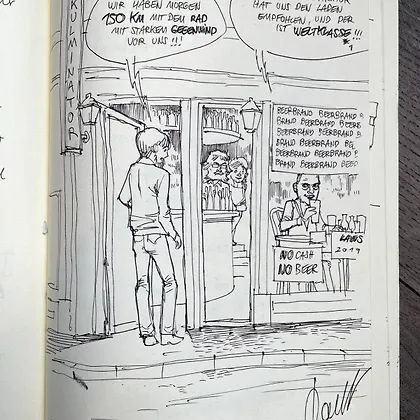 KULMINATOR
WIR HABEN MORGEN
150 KM MIT DEM RAD
MIT STARKEM GEGENWIND
VOR UNS!!!
HAT UNS DEN LADEN
EMPFOHLEN, UND DER
IST WELTKLASSE!!!
*1
BEERBRAND BEERBRAND B
BRAND BEERBRAND BEERB
BEERBRAND BEERBRAND B
BRAND BEERBRAND BEE
BEERBRAND BEERBRAND B
BRAND BEERBRAND BEER
2019
NO CASH
NO BEER